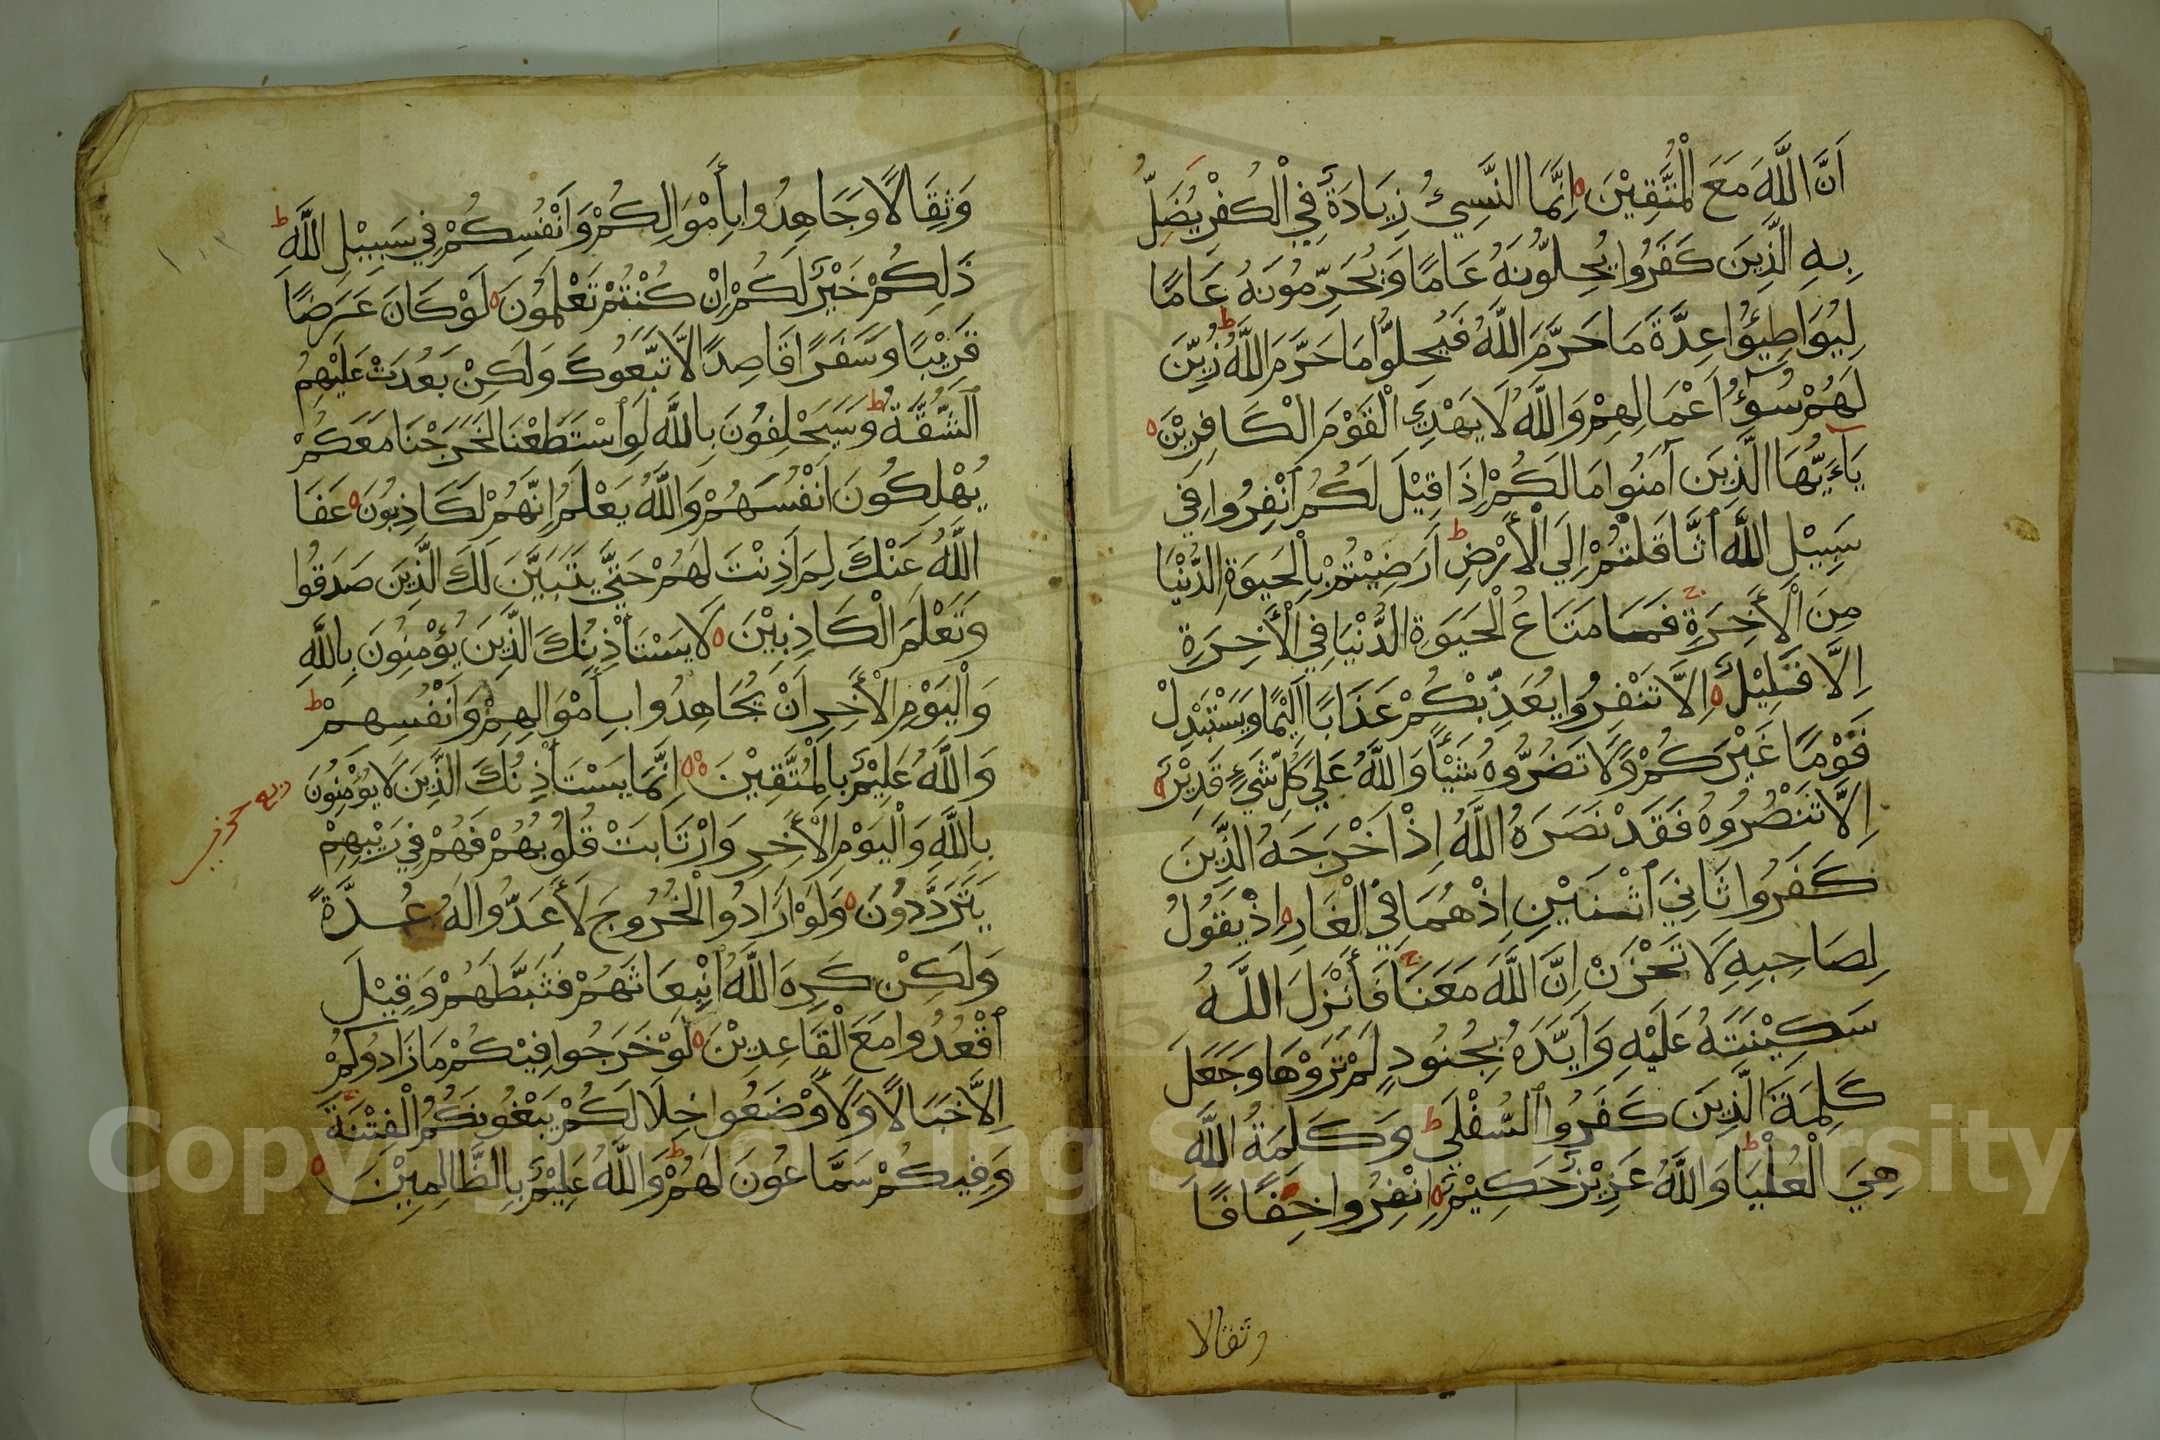 اَنَّ اللَّهَ مَعَ الْمُتَّقِيْنَ ه اِنَّمَا النَّسِيْءُ زِيَادَةٌ فِي الْكُفْرِ يُضَلُّ
بِهِ الَّذِيْنَ كَفَرُوا يُحِلُّوْنَهُ عَامًا وَيُحَرِّمُوْنَهُ عَامًا
لِيُوَاطِئُوْا عِدَّةَ مَا حَرَّمَ اللَّهُ فَيُحِلُّوْا مَا حَرَّمَ اللَّهُ ط زُيِّنَ
لَهُمْ سُوْءُ اَعْمَالِهِمْ وَاللَّهُ لَا يَهْدِي الْقَوْمَ الْكَافِرِيْنَ ه
يَاءَيُّهَا الَّذِيْنَ آمَنُوا مَا لَكُمْ اِذَا قِيْلَ لَكُمُ انْفِرُوا فِي
سَبِيْلِ اللَّهِ اثَّاقَلْتُمْ اِلَي الْأَرْضِ ط اَرَضِيْتُمْ بِالْحَيٰوةِ الدُّنْيَا
مِنَ الْأَخِرَةِ ج فَمَا مَتَاعُ الْحَيَوةِ الدُّنْيَا فِي الْأَخِرَةِ
اِلَّا قَلِيْلٌ ه اِلَّا تَنْفِرُوا يُعَذِّبْكُمْ عَذَابًا اَلِيْمًا وَيَسْتَبْدِلْ
قَوْمًا غَيْرَكُمْ وَلَا تَضُرُّوْهُ شَيْأً وَاللَّهُ عَلَي كُلِّ شَيْءٍ قَدِيْرٌ ه
اِلَّا تَنْصُرُوْهُ فَقَدْ نَصَرَهُ اللَّهُ اِذْ اَخْرَجَهُ الَّذِيْنَ
كَفَرُوا ثَانِيَ اثْنَيْنِ اِذْ هُمَا فِي الْغَارِ ه اِذْ يَقُوْلُ
لِصَاحِبِهِ لَا تَحْزَنْ اِنَّ اللَّهَ مَعَنَا ج فَأَنْزَلَ اللَّهُ
سَكِيْنَتَهُ عَلَيْهِ وَاَيَّدَهُ بِجُنُوْدٍ لَمْ تَرَوْهَا وَجَعَلَ
كَلِمَةَ الَّذِيْنَ كَفَرُوا السُّفْلَي ط وَكَلِمَةُ اللَّهِ
هِيَ الْعُلْيَا ط وَاللَّهُ عَزِيْزٌ حَكِيْمٌ ه اِنْفِرُوا خِفَافًا
وثقالا
وَثِقَالًا وَجَاهِدُوا بِأَمْوَالِكُمْ وَاَنْفُسِكُمْ فِي سَبِيْلِ اللَّهِ ط
ذَلِكُمْ خَيْرٌ لَكُمْ اِنْ كُنْتُمْ تَعْلَمُوْنَ ه لَوْ كَانَ عَرَضًا
قَرِيْبًا وَسَفَرًا قَاصِدًا لَاتَّبَعُوكَ وَلَكِنْ بَعُدَتْ عَلَيْهِمُ
الشُّقَّةُ ط وَسَيَحْلِفُوْنَ بِاللَّهِ لَوِ اسْتَطَعْنَا لَخَرَجْنَا مَعَكُمْ
يُهْلِكُوْنَ اَنْفُسَهُمْ وَاللَّهُ يَعْلَمُ اِنَّهُمْ لَكَاذِبُوْنَ ه عَفَا
اللَّهُ عَنْكَ لِمَ اَذِنْتَ لَهُمْ حَتَّي يَتَبَيَّنَ لَكَ الَّذِيْنَ صَدَقُوا
وَتَعْلَمَ الْكَاذِبِيْنَ ه لَا يَسْتَأْذِنُكَ الَّذِيْنَ يُؤْمِنُوْنَ بِاللَّهِ
وَالْيَوْمِ الْأَخِرِ اَنْ يُجَاهِدُوا بِأَمْوَالِهِمْ وَاَنْفُسِهِمْ ط
وَاللَّهُ عَلِيْمٌ بِالْمُتَّقِيْنَ ه اِنَّمَا يَسْتَأْذِنُكَ الَّذِيْنَ لَا يُؤْمِنُوْنَ
ربع حزب
بِاللَّهِ وَالْيَوْمِ الْأَخِرِ وَارْتَابَتْ قُلُوْبُهُمْ فَهُمْ فِي رَيْبِهِمْ
يَتَرَدَّدُوْنَ ه وَلَوْ اَرَادُوا الْخُرُوجَ لَأَعَدُّوا لَهُ عُدَّةً
وَلَكِنْ كَرِهَ اللَّهُ انْبِعَاثَهُمْ فَثَبَّطَهُمْ وَقِيْلَ
اقْعُدُوا مَعَ الْقَاعِدِيْنَ ه لَوْ خَرَجُوا فِيْكُمْ مَا زَادُوكُمْ
اِلَّا خَبَالًا وَلَأَوْضَعُوا خِلَالَكُمْ يَبْغُوْنَكُمُ الْفِتْنَةَ ج
وَفِيكُمْ سَمَّاعُونَ لَهُمْ ط وَاللَّهُ عَلِيْمٌ بِالظَّالِمِيْنَ ه
Copyright © King Saud University